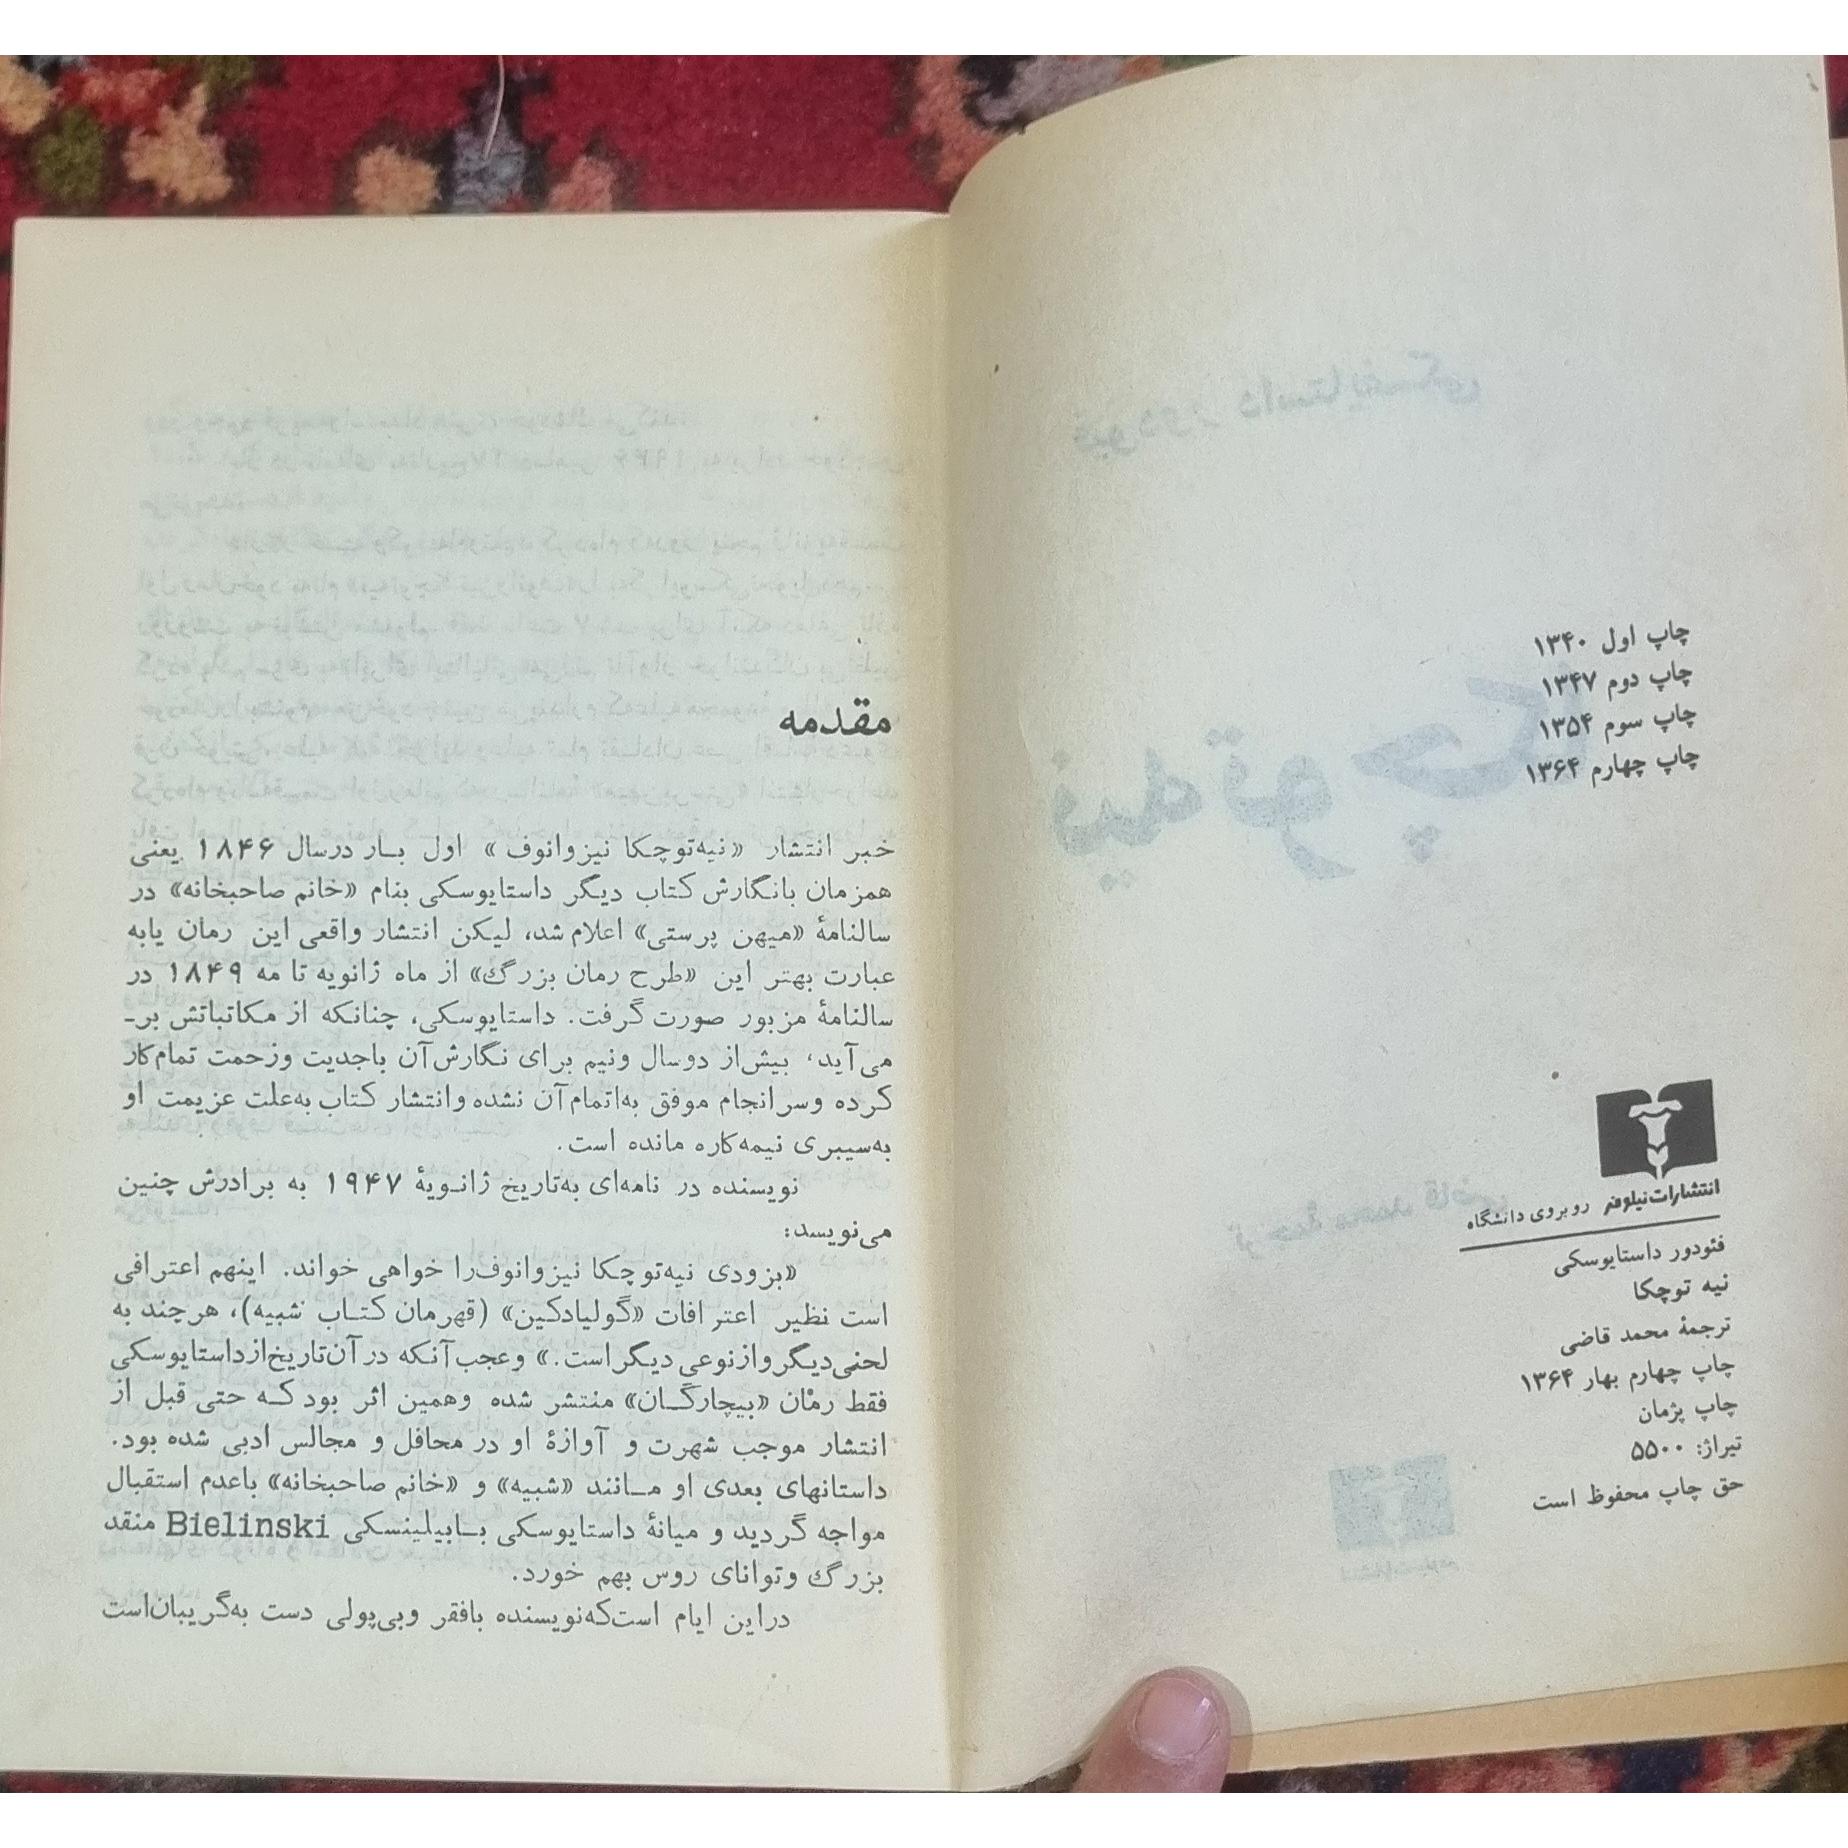 چاپ اول ۱۳۴۰
چاپ دوم ۱۳۴۷
چاپ سوم ۱۳۵۴
چاپ چهارم ۱۳۶۴
انتشارات نیلوفر روبروی دانشگاه
فئودور داستایوسکی
نیه توچکا
ترجمهٔ محمد قاضی
چاپ چهارم بهار ۱۳۶۴
چاپ پژمان
تیراژ: ۵۵۰۰
حق چاپ محفوظ است
مقدمه
خبر انتشار «نیه‌توچکا نیزوانوف» اول بار درسال ۱۸۴۶ یعنی
همزمان بانگارش کتاب دیگر داستایوسکی بنام «خانم صاحبخانه» در
سالنامهٔ «میهن پرستی» اعلام شد، لیکن انتشار واقعی این رمان یابه
عبارت بهتر این «طرح رمان بزرگ» از ماه ژانویه تا مه ۱۸۴۹ در
سالنامهٔ مزبور صورت گرفت. داستایوسکی، چنانکه از مکاتباتش بر-
می‌آید، بیش‌از دوسال ونیم برای نگارش‌آن باجدیت وزحمت تمام‌کار
کرده وسرانجام موفق به‌اتمام‌آن نشده وانتشار کتاب به‌علت عزیمت او
به‌سیبری نیمه‌کاره مانده است.
نویسنده در نامه‌ای به‌تاریخ ژانویهٔ ۱۹۴۷ به برادرش چنین
می‌نویسد:
«بزودی نیه‌توچکا نیزوانوف‌را خواهی خواند. اینهم اعترافی
است نظیر اعترافات «گولیادکین» (قهرمان کتاب شبیه)، هرچند به
لحنی‌دیگر وازنوعی دیگراست.» وعجب‌آنکه درآن‌تاریخ‌ازداستایوسکی
فقط رمان «بیچارگان» منتشر شده وهمین اثر بود که حتی قبل از
انتشار موجب شهرت و آوازهٔ او در محافل و مجالس ادبی شده بود.
داستانهای بعدی او مانند «شبیه» و «خانم صاحبخانه» باعدم استقبال
مواجه گردید و میانهٔ داستایوسکی بابیلینسکی Bielinski منقد
بزرگ وتوانای روس بهم خورد.
دراین ایام است‌که‌نویسنده بافقر وبی‌پولی دست به‌گریبان‌است